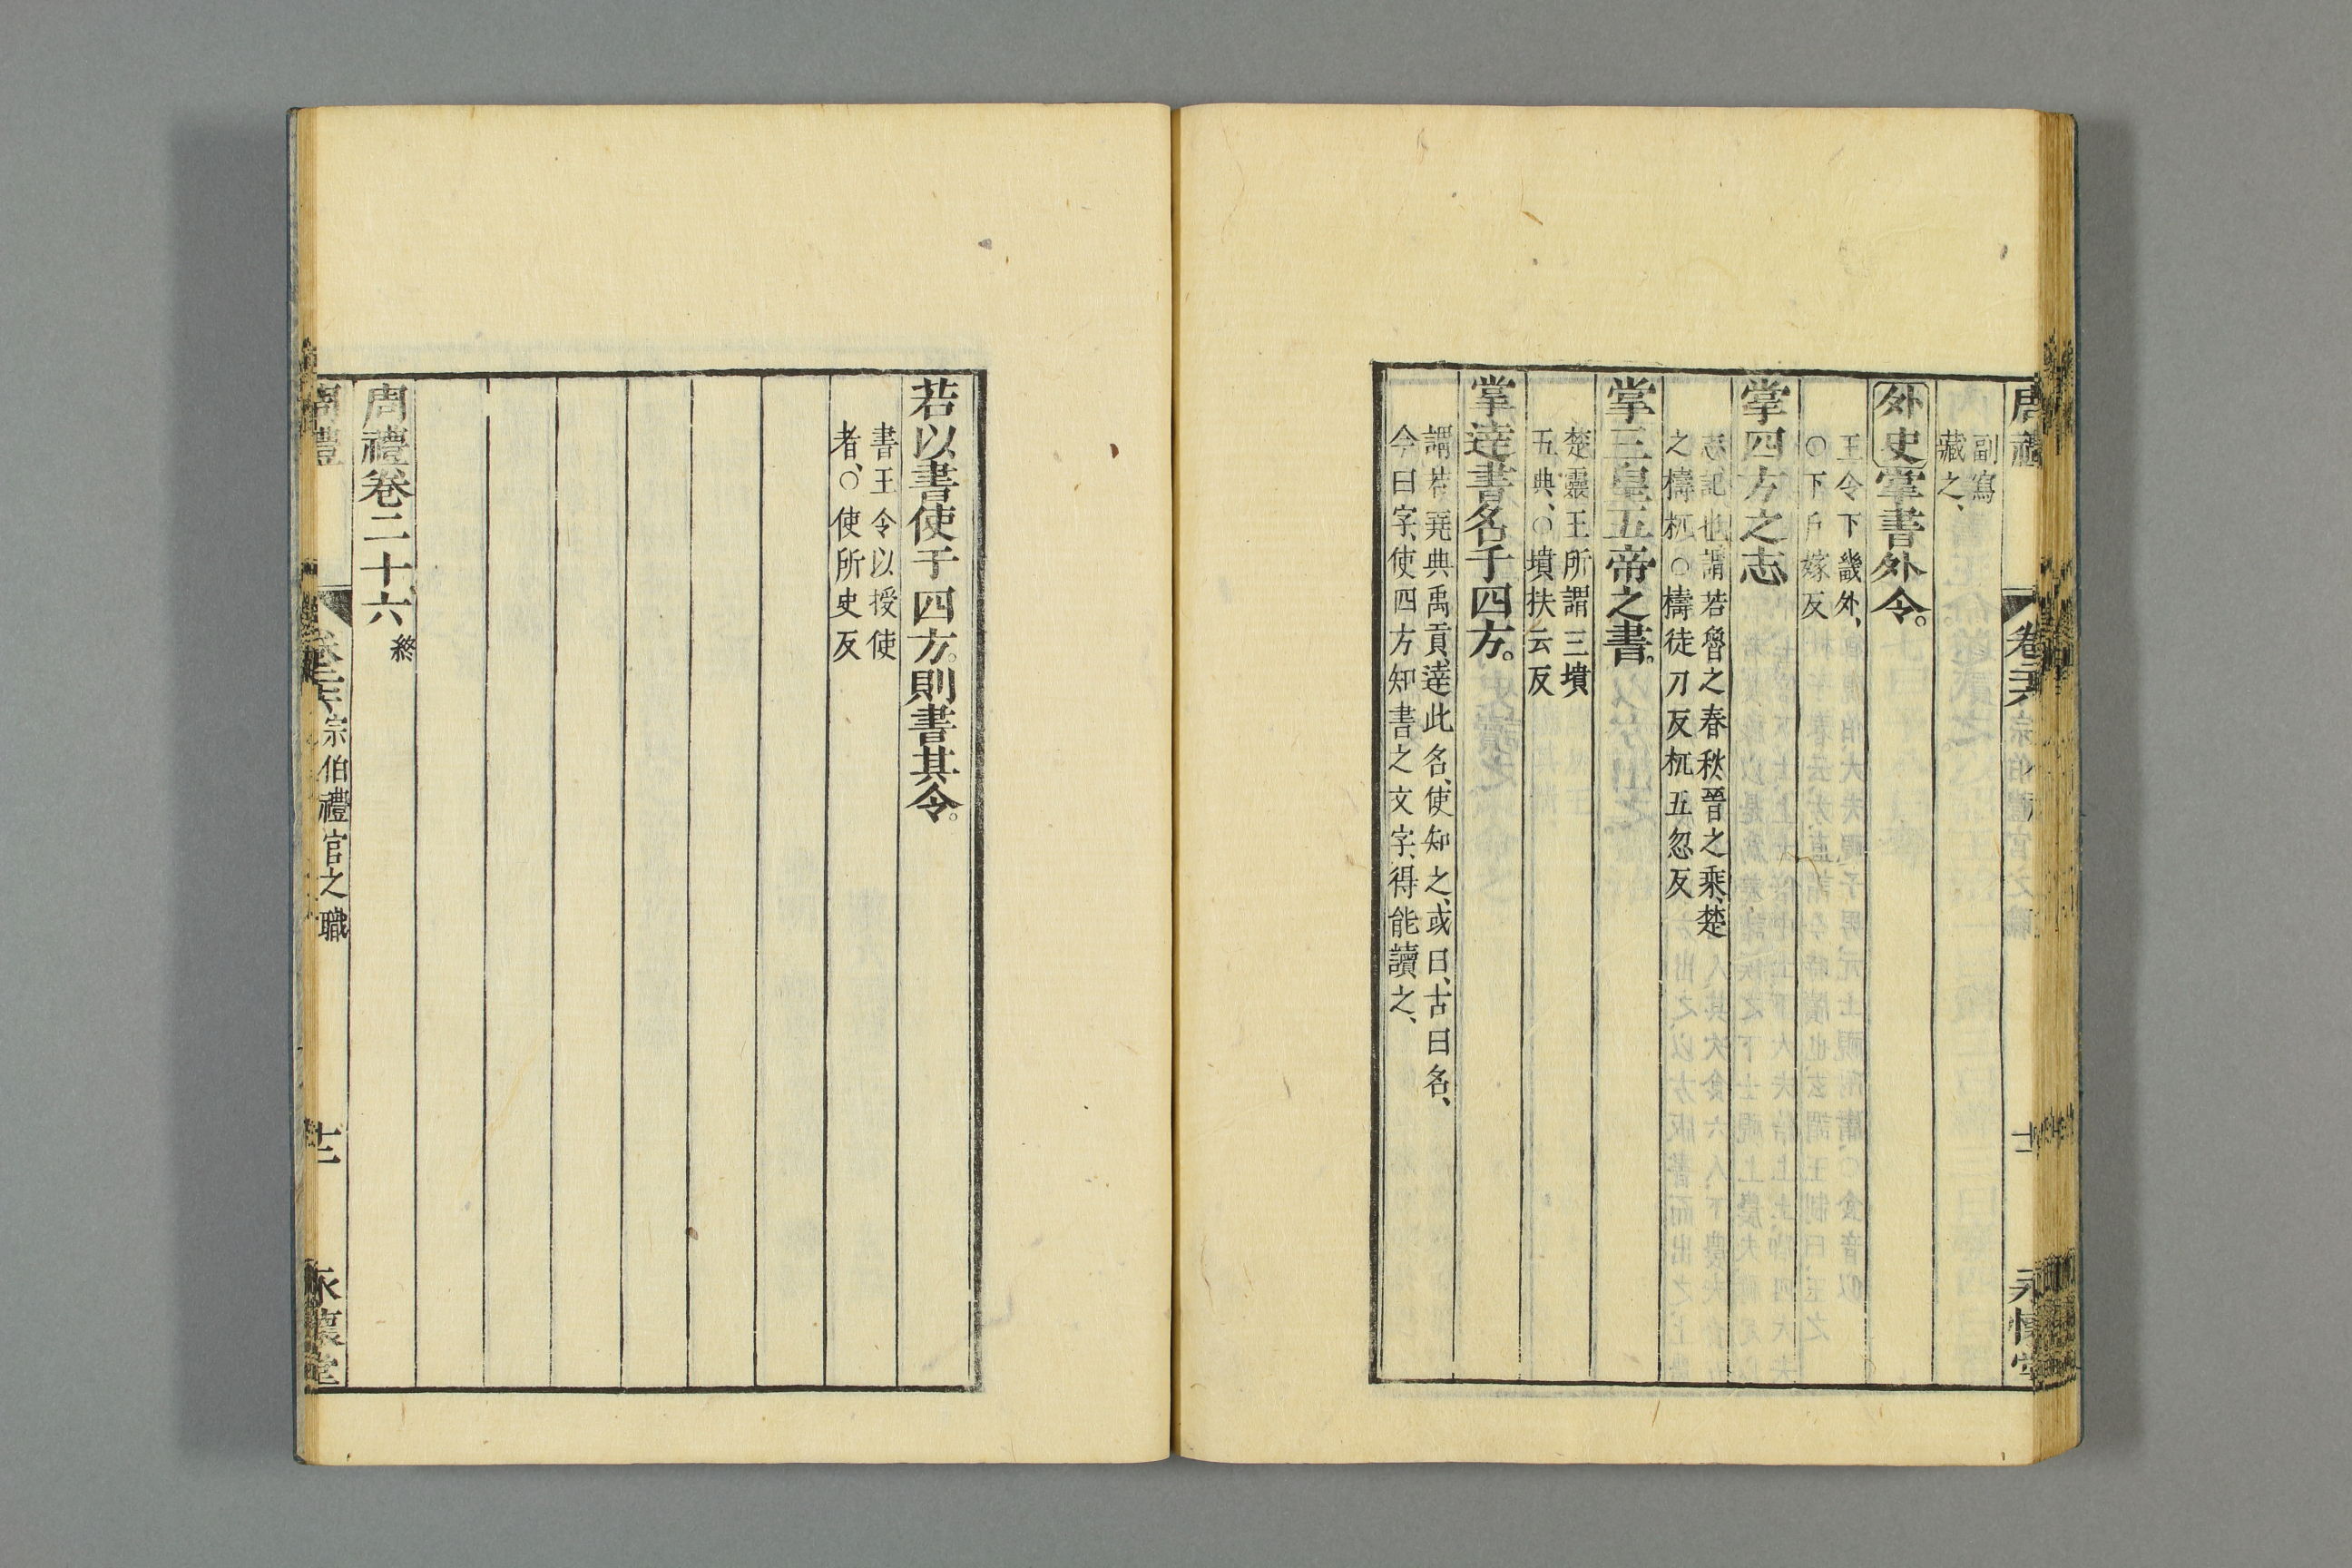 副寫
藏之、
外史掌書外令。
王令下畿外、
○下戶嫁反
掌四方之志
志記也謂若魯之春秋晉之乘、楚
之檮杌○檮徒刀反杌五忽反
掌三皇五帝之書。
楚靈王所謂三墳
五典、○墳扶云反
掌達書名于四方。
謂若堯典禹貢、達此名、使知之、或曰、古曰名、
今曰字、使四方知書之文字、得能讀之、
卷二六 宗伯禮官之職
十一
永懷堂
若以書使于四方。則書其令。
書王令以授使
者、○使所吏反
周禮卷二十六 終
周禮
卷二六 宗伯禮官之職
十二
永懷堂